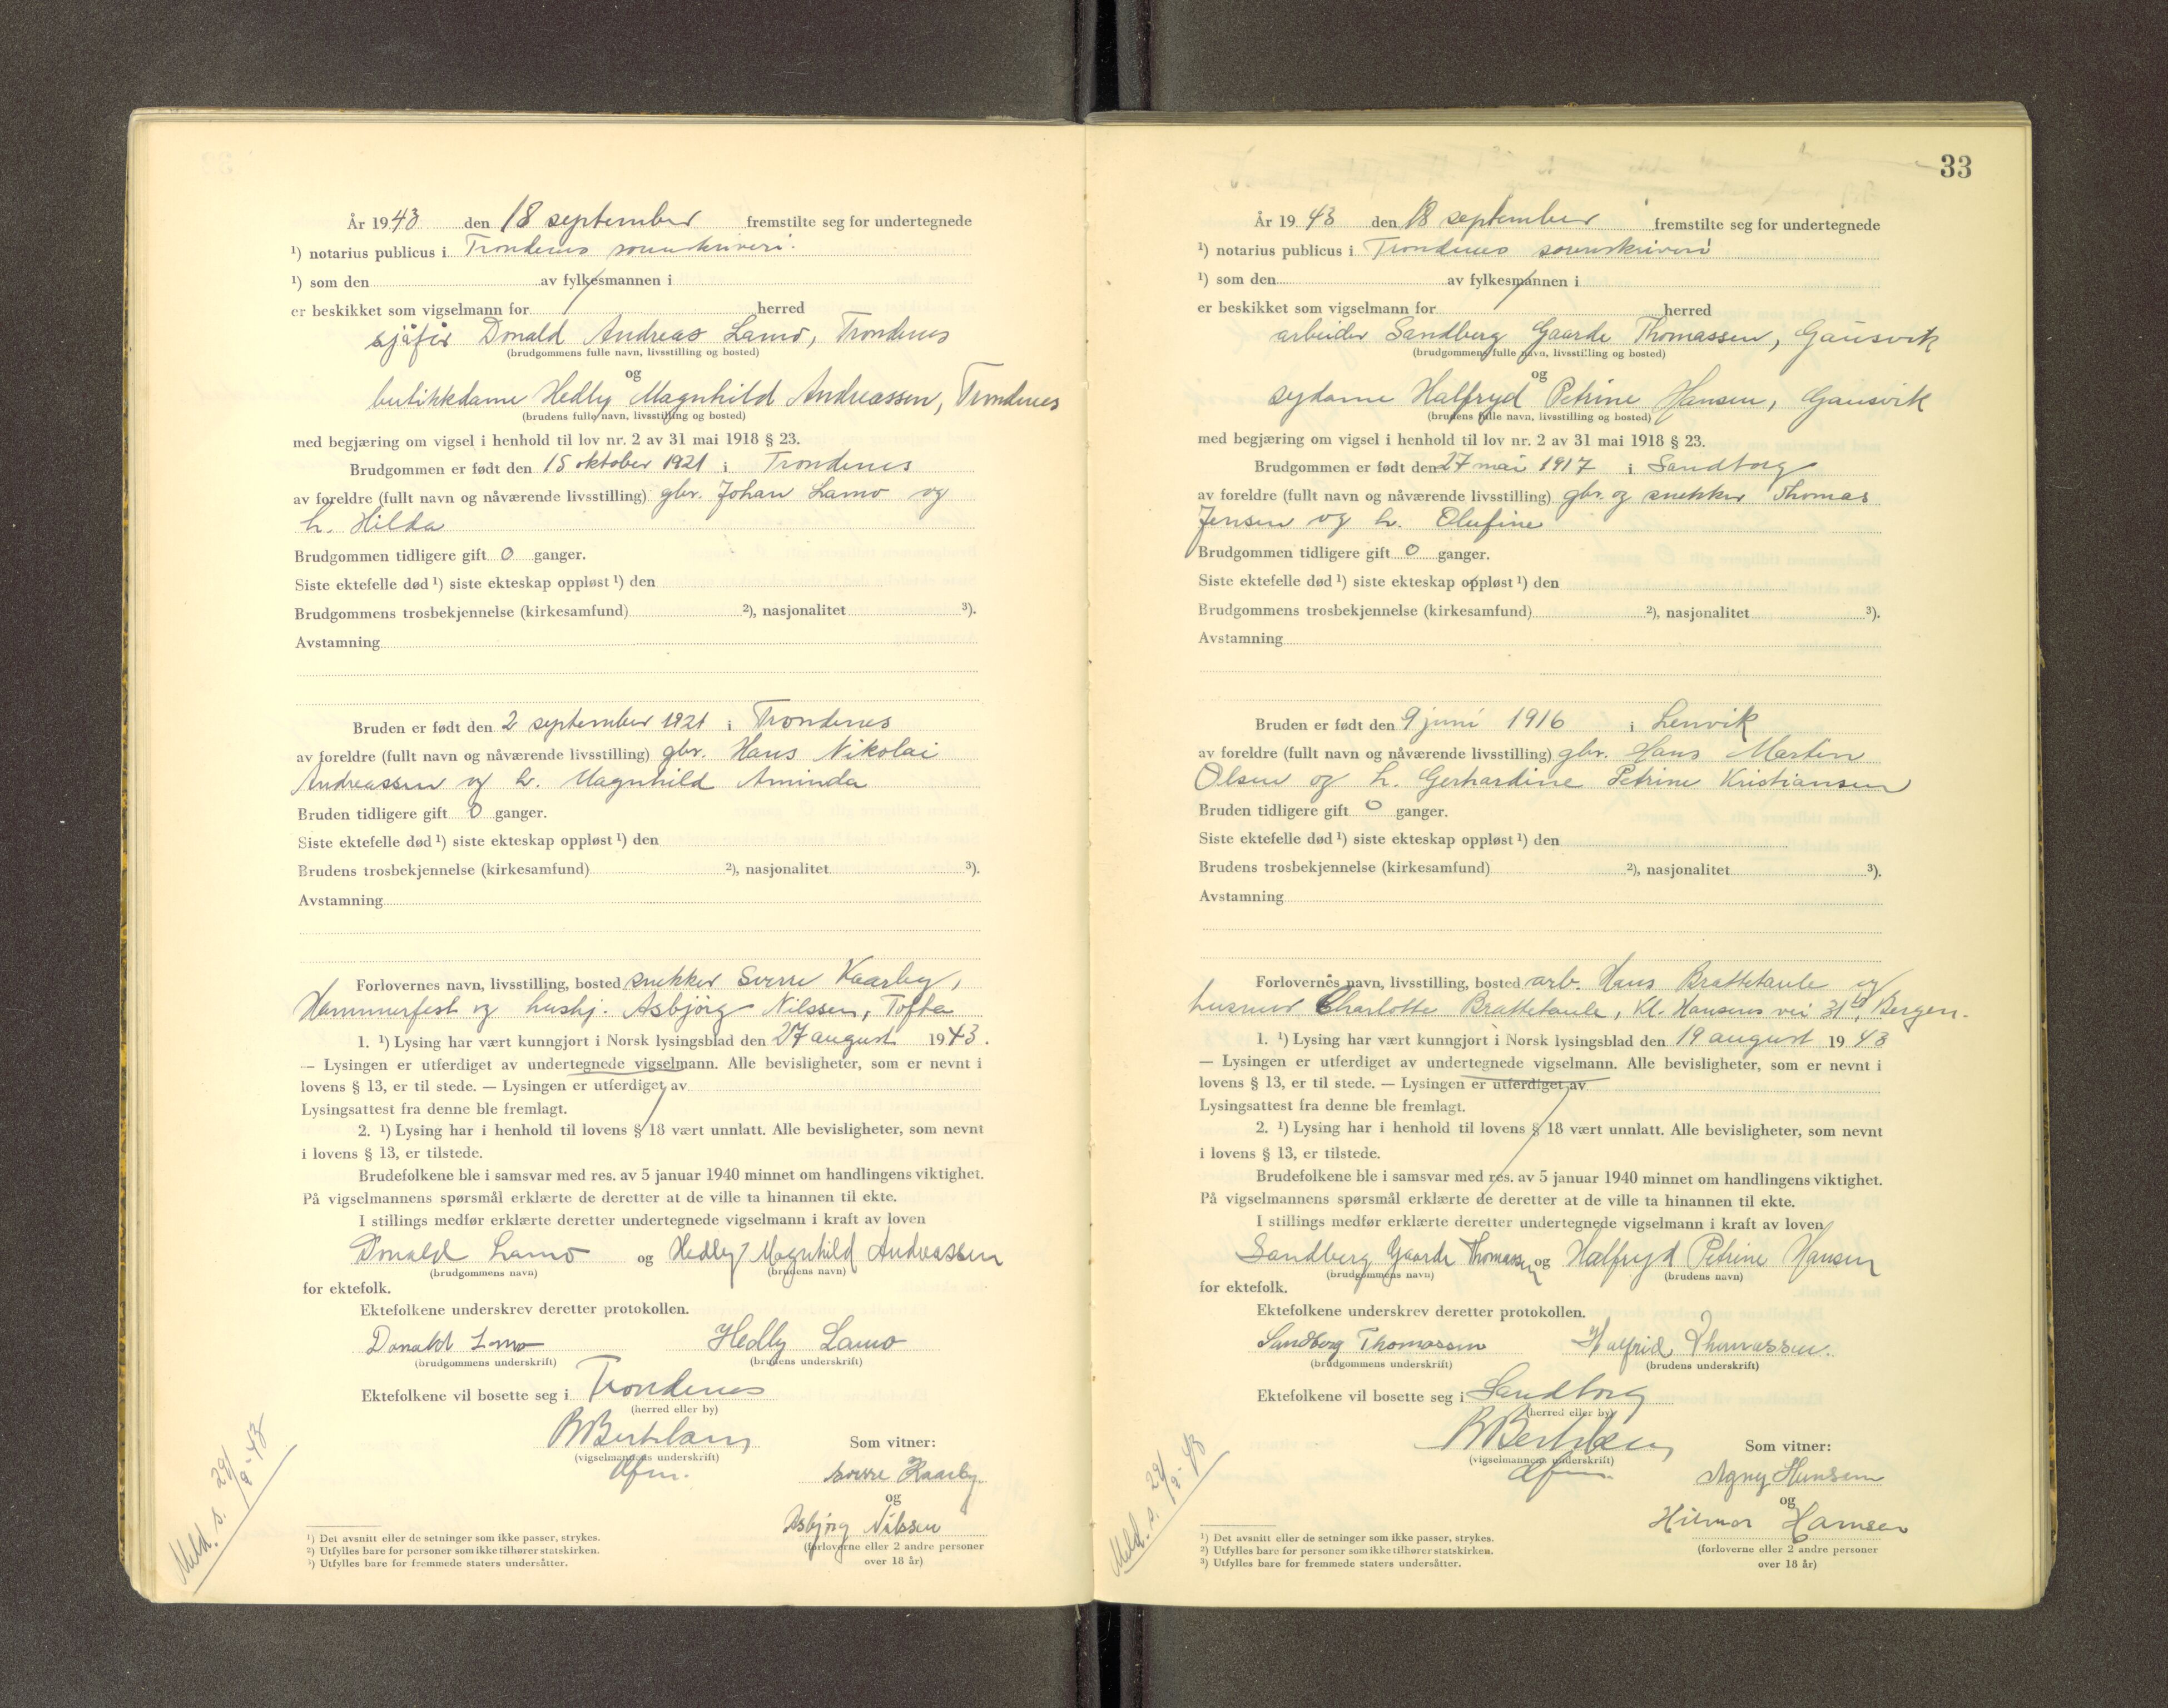 År 1943 den 18 september fremstilte seg for undertegnede
¹) notarius publicus i Trondenes sorenskriveri.
¹) som den av fylkesmannen i
er beskikket som vigselmann for herred
sjåfør Donald Andreas Lamo, Trondenes
(brudgommens fulle navn, livsstilling og bosted)
og
butikkdame Hedly Magnhild Andreassen, Trondenes
(brudens fulle navn, livsstilling og bosted)
med begjæring om vigsel i henhold til lov nr. 2 av 31 mai 1918 § 23.
Brudgommen er født den 15 oktober 1921 i Trondenes
av foreldre (fullt navn og nåværende livsstilling) gbr. Johan Lamo og
h. Hilda
Brudgommen tidligere gift 0 ganger.
Siste ektefelle død ¹) siste ekteskap oppløst ¹) den
Brudgommens trosbekjennelse (kirkesamfund) ²), nasjonalitet ³).
Avstamning
Bruden er født den 2 september 1921 i Trondenes
av foreldre (fullt navn og nåværende livsstilling) gbr. Hans Nikolai
Andreassen og h. Magnhild Aminda
Bruden tidligere gift 0 ganger.
Siste ektefelle død ¹) siste ekteskap oppløst ¹) den
Brudens trosbekjennelse (kirkesamfund) ²), nasjonalitet ³).
Avstamning
Forlovernes navn, livsstilling, bosted snekker Sverre Kaarby,
Hammerfest og hushj. Asbjörg Nilssen, Tofta
1. ¹) Lysing har vært kunngjort i Norsk lysingsblad den 27 august 1943.
— Lysingen er utferdiget av undertegnede vigselmann. Alle bevisligheter, som er nevnt i
lovens § 13, er til stede. — Lysingen er utferdiget av
Lysingsattest fra denne ble fremlagt.
2. ¹) Lysing har i henhold til lovens § 18 vært unnlatt. Alle bevisligheter, som nevnt
i lovens § 13, er tilstede.
Brudefolkene ble i samsvar med res. av 5 januar 1940 minnet om handlingens viktighet.
På vigselmannens spørsmål erklærte de deretter at de ville ta hinannen til ekte.
I stillings medfør erklærte deretter undertegnede vigselmann i kraft av loven
Donald Lamo og Hedly Magnhild Andreassen
(brudgommens navn) (brudens navn)
for ektefolk.
Ektefolkene underskrev deretter protokollen.
Donald Lamo Hedly Lamo
(brudgommens underskrift) (brudens underskrift)
Ektefolkene vil bosette seg i Trondenes
(herred eller by)
Som vitner:
(vigselmannens underskrift)
Sverre Kaarby.
og
Asbjörg Nilssen
(forloverne eller 2 andre personer
over 18 år)
Meld. s. 29/9-43
¹) Det avsnitt eller de setninger som ikke passer, strykes.
²) Utfylles bare for personer som ikke tilhører statskirken.
³) Utfylles bare for fremmede staters undersåtter.
33
År 1943 den 18 september fremstilte seg for undertegnede
¹) notarius publicus i Trondenes sorenskriveri
¹) som den av fylkesmannen i
er beskikket som vigselmann for herred
arbeider Sandberg Gaarde Thomassen, Gausvik
(brudgommens fulle navn, livsstilling og bosted)
og
sydame Halfryd Petrine Hansen, Gausvik
(brudens fulle navn, livsstilling og bosted)
med begjæring om vigsel i henhold til lov nr. 2 av 31 mai 1918 § 23.
Brudgommen er født den 27 mai 1917 i Sandtorg
av foreldre (fullt navn og nåværende livsstilling) gbr. og snekker Thomas
Jensen og h. Olufine
Brudgommen tidligere gift 0 ganger.
Siste ektefelle død ¹) siste ekteskap oppløst ¹) den
Brudgommens trosbekjennelse (kirkesamfund) ²), nasjonalitet ³).
Avstamning
Bruden er født den 9 juni 1916 i Lenvik
av foreldre (fullt navn og nåværende livsstilling) gbr. Hans Martin
Olsen og h. Gerhardine Petrine Kristiansen
Bruden tidligere gift 0 ganger.
Siste ektefelle død ¹) siste ekteskap oppløst ¹) den
Brudens trosbekjennelse (kirkesamfund) ²), nasjonalitet ³).
Avstamning
Forlovernes navn, livsstilling, bosted arb. Hans Brattetaule og
husmor Charlotte Brattetaule, Kl. Hansens vei 31b, Bergen.
1. ¹) Lysing har vært kunngjort i Norsk lysingsblad den 19 august 1943
— Lysingen er utferdiget av undertegnede vigselmann. Alle bevisligheter, som er nevnt i
lovens § 13, er til stede. — Lysingen er utferdiget av
Lysingsattest fra denne ble fremlagt.
2. ¹) Lysing har i henhold til lovens § 18 vært unnlatt. Alle bevisligheter, som nevnt
i lovens § 13, er tilstede.
Brudefolkene ble i samsvar med res. av 5 januar 1940 minnet om handlingens viktighet.
På vigselmannens spørsmål erklærte de deretter at de ville ta hinannen til ekte.
I stillings medfør erklærte deretter undertegnede vigselmann i kraft av loven
Sandberg Gaarde Thomassen og Halfryd Petrine Hansen
(brudgommens navn) (brudens navn)
for ektefolk.
Ektefolkene underskrev deretter protokollen.
Sandberg Thomassen Halfrid Thomassen.
(brudgommens underskrift) (brudens underskrift)
Ektefolkene vil bosette seg i Sandtorg
(herred eller by)
Som vitner:
(vigselmannens underskrift)
Agny Hansen
og
Hilmar Hansen
(forloverne eller 2 andre personer
over 18 år)
Meld. s. 29/9-43
¹) Det avsnitt eller de setninger som ikke passer, strykes.
²) Utfylles bare for personer som ikke tilhører statskirken.
³) Utfylles bare for fremmede staters undersåtter.